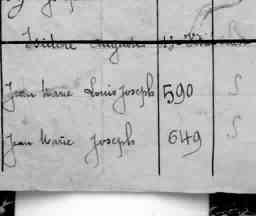 Isidore
Jean Marie Louis Joseph 590 S
Jean Marie Joseph 649 S